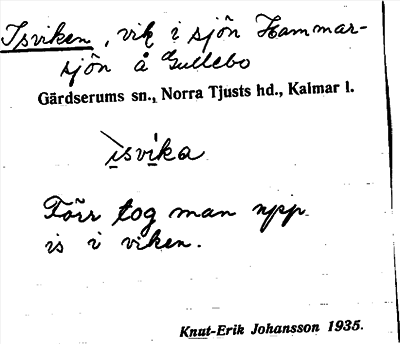 Isviken, vik i sjön Hammar-
sjön å Gullebo
Gärdserums sn., Norra Tjusts hd., Kalmar l.
ìsvika
Förr tog man upp
is i viken.
Knut-Erik Johansson 1935.